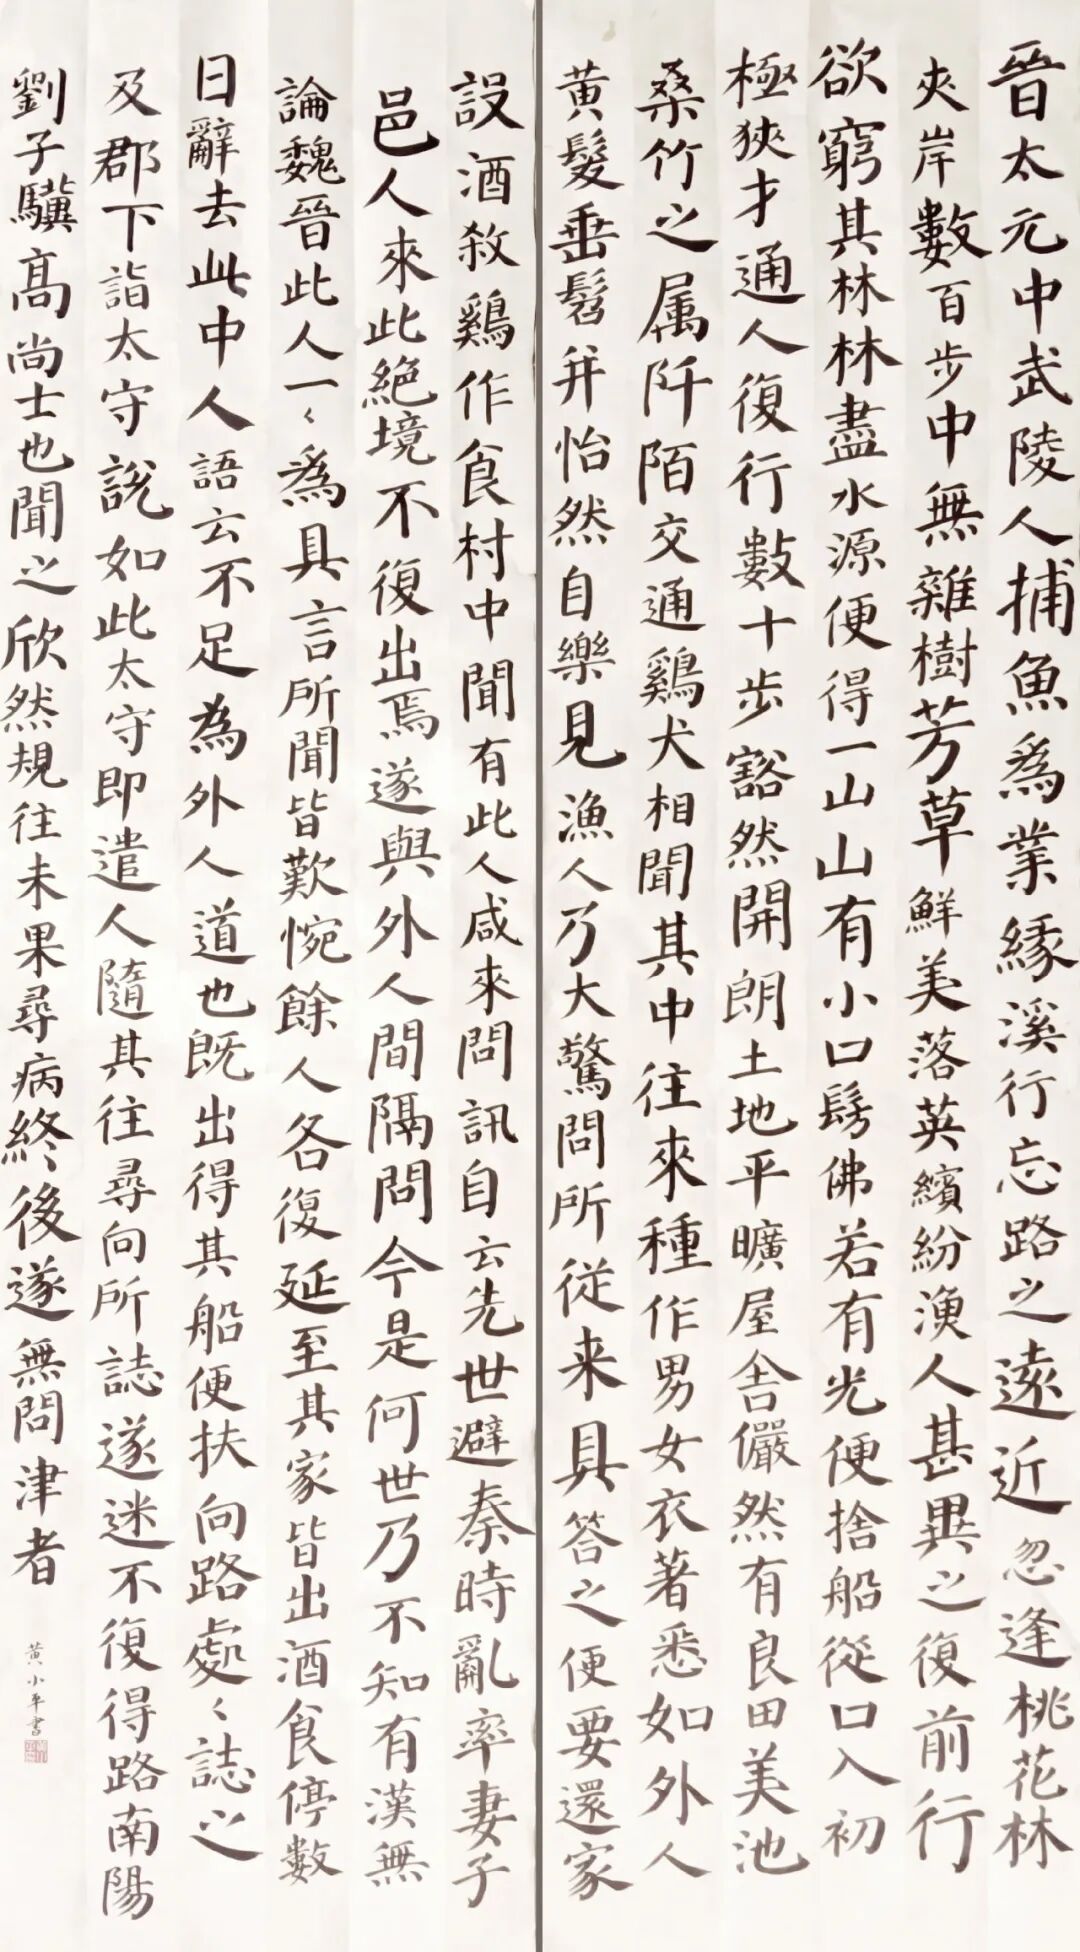 晉太元中武陵人捕魚爲業緣溪行忘路之遠近忽逢桃花林
夾岸數百步中無雜樹芳草鮮美落英繽紛漁人甚異之復前行
欲窮其林林盡水源便得一山山有小口髣佛若有光便捨船從口入初
極狹才通人復行數十步豁然開朗土地平曠屋舍儼然有良田美池
桑竹之属阡陌交通鷄犬相聞其中往來種作男女衣著悉如外人
黄髮垂髫并怡然自樂見漁人乃大驚問所従来具答之便要還家
設酒殺鷄作食村中聞有此人咸來問訊自云先世避秦時亂率妻子
邑人來此絶境不復出焉遂與外人間隔問今是何世乃不知有漢無
論魏晉此人一〻爲具言所聞皆歎惋餘人各復延至其家皆出酒食停數
日辭去此中人語云不足為外人道也既出得其船便扶向路處〻誌之
及郡下詣太守說如此太守即遣人隨其往尋向所誌遂迷不復得路南陽
劉子驥高尚士也聞之欣然規往未果尋病終後遂無問津者
黄小平書